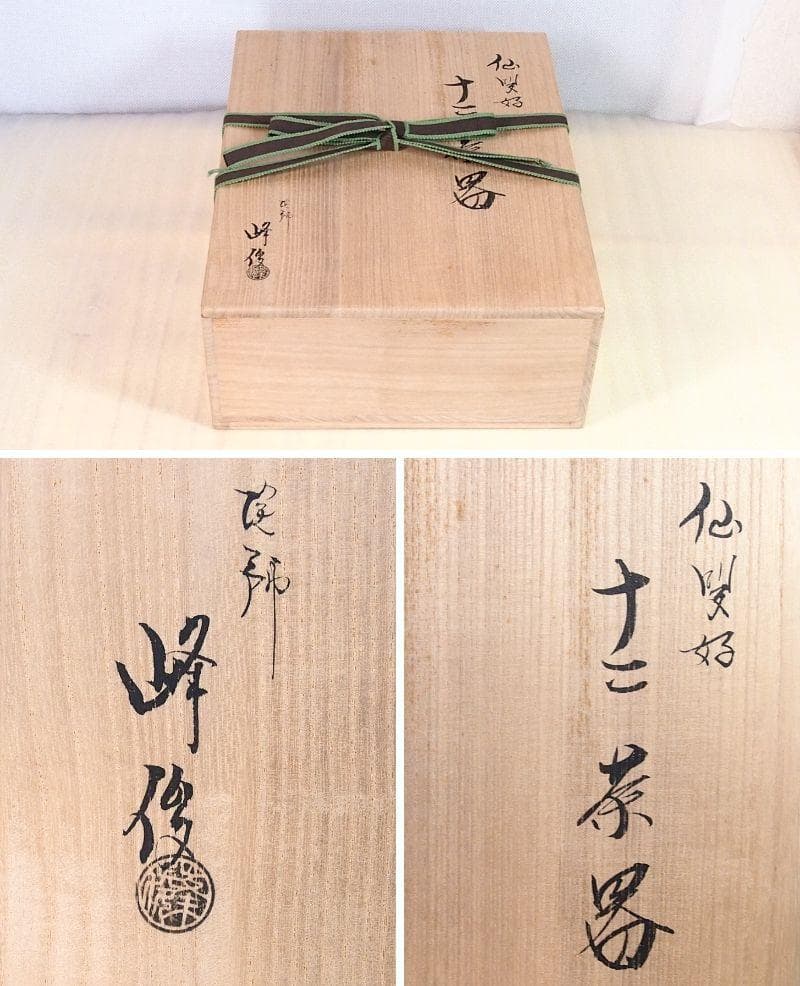 仙叟好
十二茶器
塗師
峰俊
塗師
峰俊
仙叟好
十二茶器